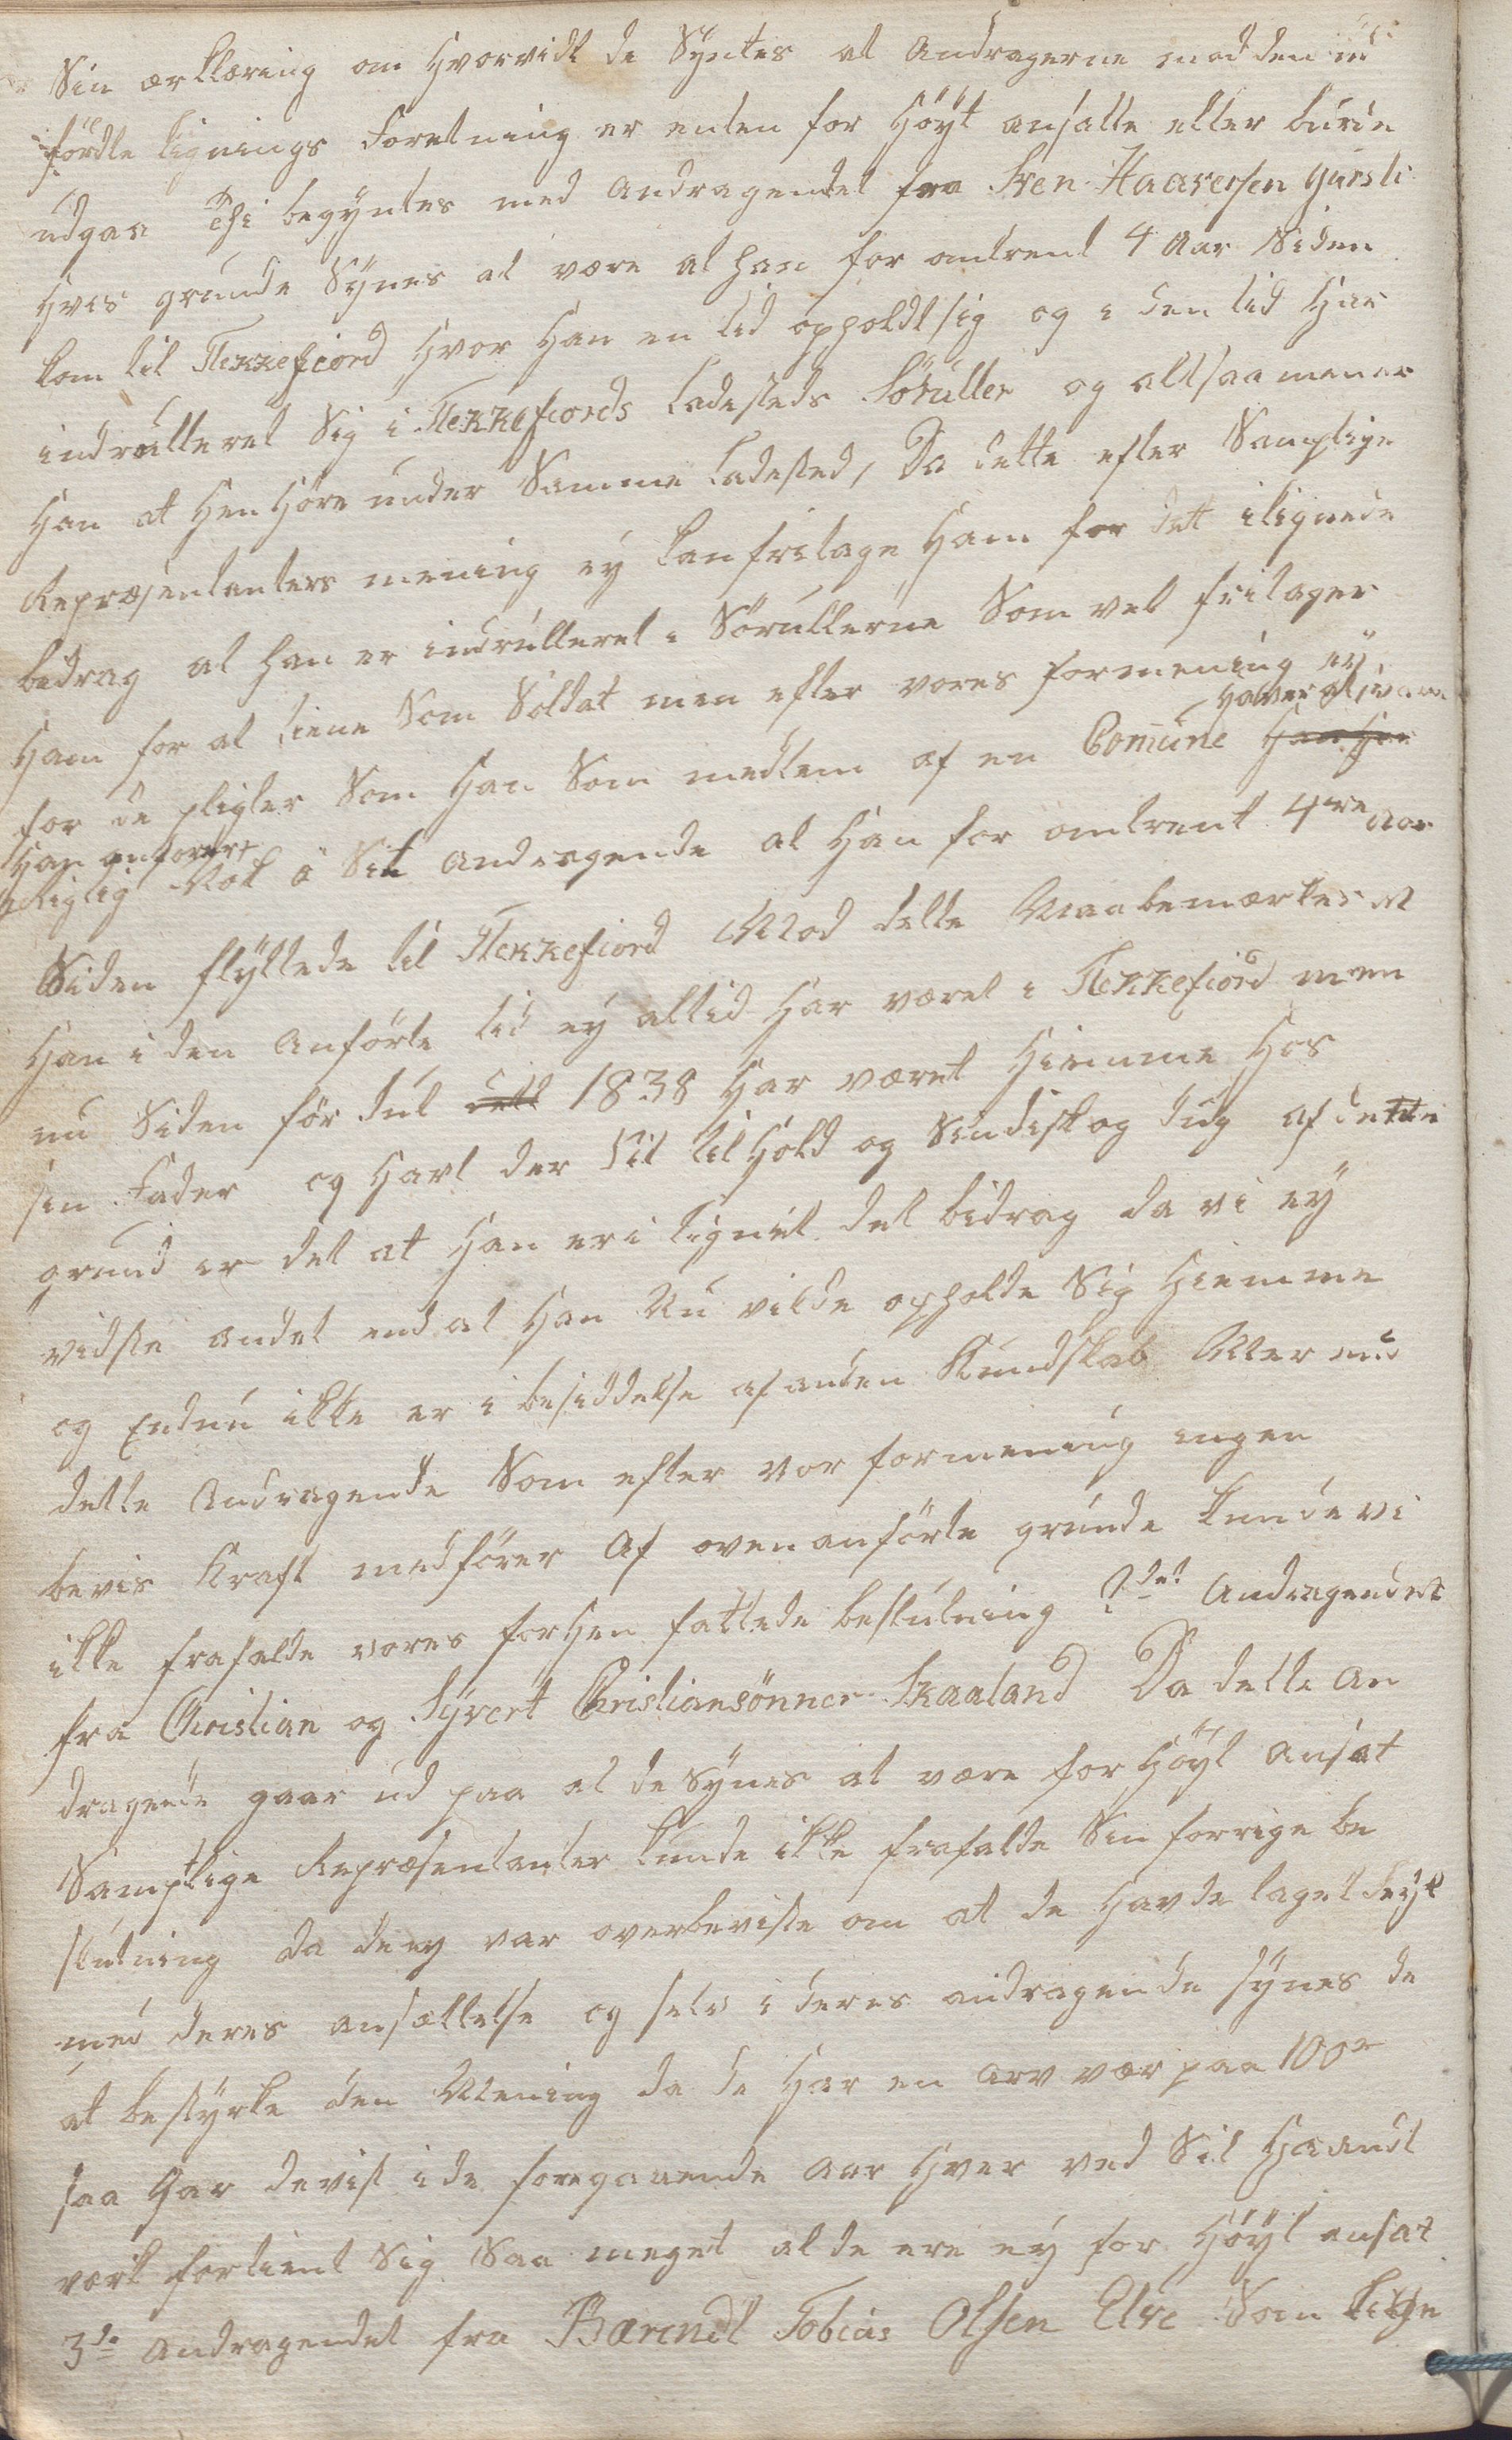 Sin ærklæring om Hvorvidt de Syntes at Andragerne mod den ud
förte lignings Foretning er enten for Höyt ansatte eller burde
udgaa Thi begyntes med Andragendet fra Sven Haaversen Gursli
Hvis grunde Synes at være at han for omtrent 4 Aar Siden
kom til Flekkefiord Hvor Han en tid opholdt sig og i den tid Har
indrulleret Sig i Flekkefiords Ladesteds Sörulle og altsaa mener
Han at Henhöre under Samme Ladested, Da dette efter Samptlige
Repræsentanters mening ey kan fritage Ham for det ilignede
bidrag at han er indrulleret i Sörullerne Som vel fritager
Ham for at tiene Som Soldat men efter vores formening ey
for de pligter Som Han Som medlem af en Comune
Han anförer
Siden flyttede til Flekkefiord Mod dette Maa bemærkes at
Han i den Anförte tid ey altid Har været i Flekkefiord men
nu Siden för Jul 1838 Har været Hiemme Hos
sin Fader og Havt der Sit tilHold og af dette
grund er det at Han er i lignet det bidrag da vi ey
vidste andet end at Han Nu vilde opholde Sig Hiemme
og Endnu ikke er i besiddelse af anden Kundskab
dette Andragende Som efter vor formening ingen
bevis Kraft medförer Af ovenanförte grunde kunde vi
ikke frafalde vores forHen fattede beslutning 2det Andragendet
fra Christian og Syvert Christiansönner Skaaland Da dette An
dragende gaar ud paa at de Synes at være for Höyt Ansat
Samptlige Repræsentanter kunde ikke frafalde Sin forrige be
slutning da de ey var overbeviste om at de Havde taget feyl
med deres ansættelse og selv i deres andragende synes de
at bestyrke den Mening da de Har en Arv vær paa 100
saa Har de vist i de foregaaende Aar Hver ved Sit Haandt
værk fortient Sig Saa meget at de ere ey for Höyt ansat
3die Andragendet fra Barendt Tobias Olsen Elve Som